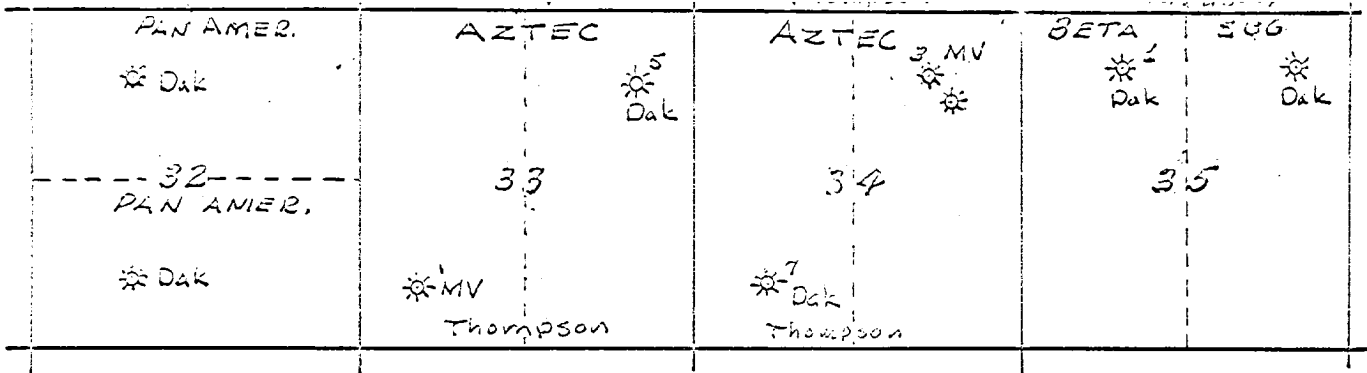 PAN AMER.
Dak
32
PAN AMER.
Dak
AZTEC
5
Dak
33
1 MV
Thompson
AZTEC
3 MV
34
7
Dak
Thompson
BETA
1
Dak
35
Dak